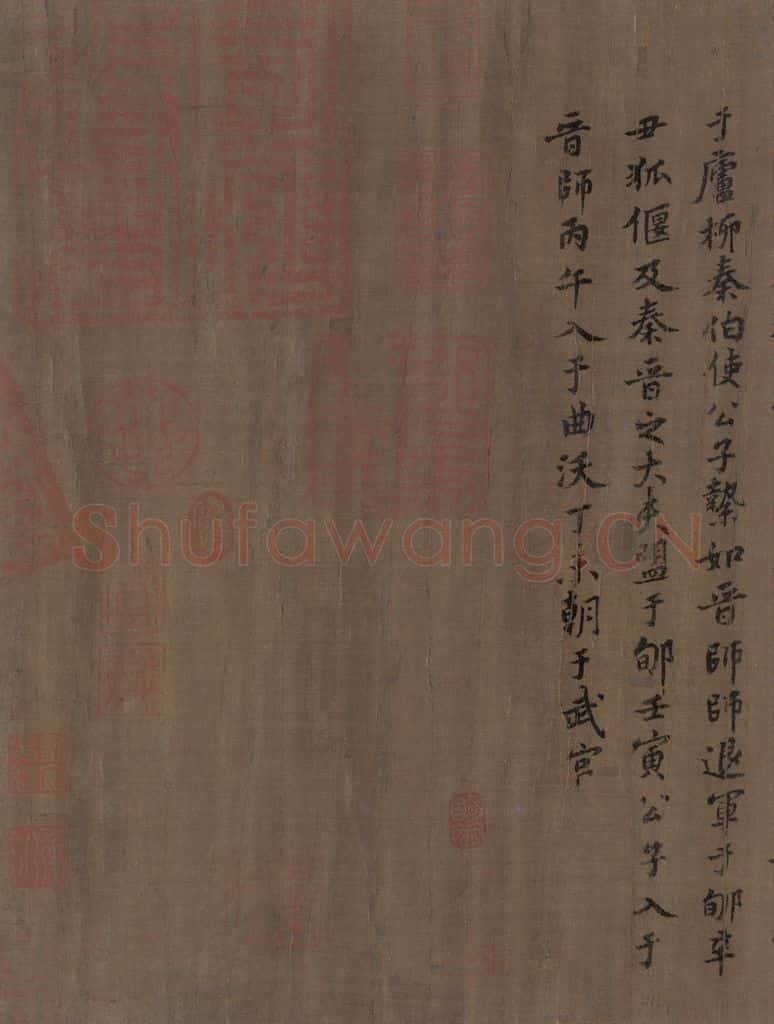 于廬柳秦伯使公子縶如晉師師退軍于郇辛
丑狐偃及秦晉之大夫盟于郇壬寅公子入于
晉師丙午入于曲沃丁未朝于武宮
Shufawang.CN